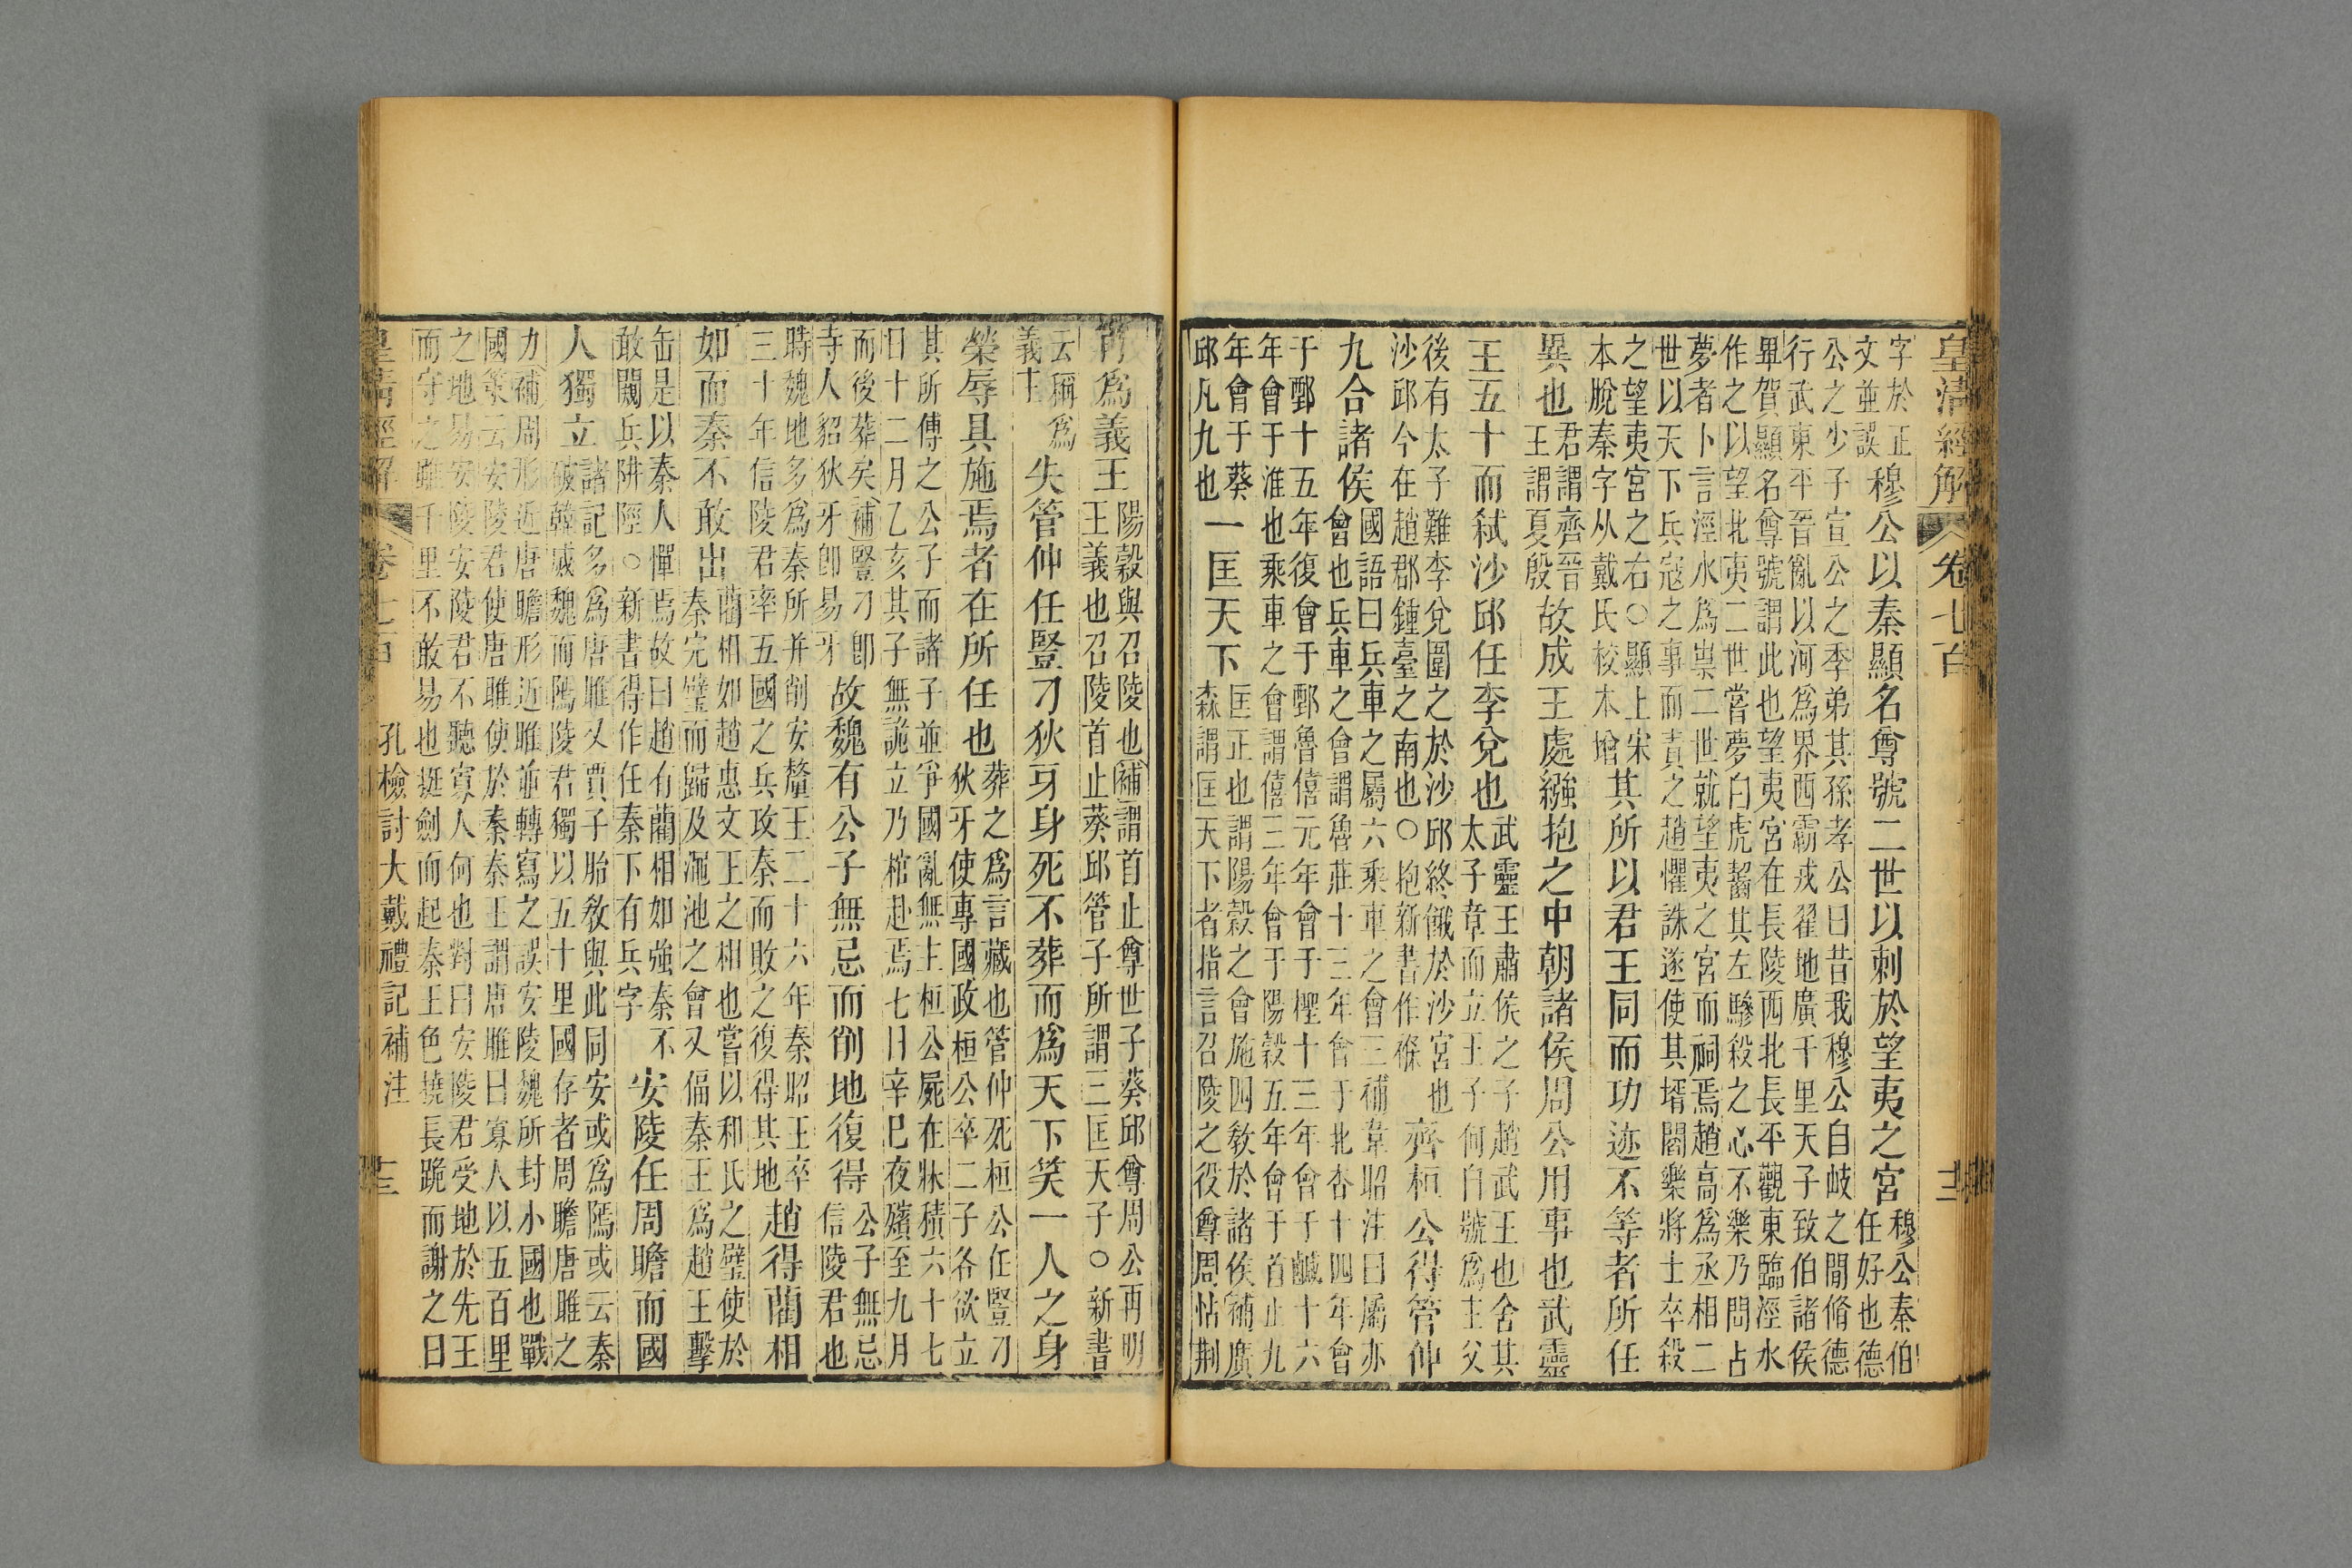 皇清經解 卷七百
字於正
文並誤
穆公以秦顯名尊號二世以刺於望夷之宮
穆公秦伯
任好也德
公之少子宣公之季弟其孫孝公曰昔我穆公自岐之閒脩德
行武東平晉亂以河爲界西霸戎翟地廣千里天子致伯諸侯
畢賀顯名尊號謂此也望夷宮在長陵西北長平觀東臨涇水
作之以望北夷二世嘗夢白虎齧其左驂殺之心不樂乃問占
夢者卜言涇水爲祟二世就望夷之宮而祠焉趙高爲丞相二
世以天下兵寇之事而責之趙懼誅遂使其壻閻樂將士卒殺
之望夷宮之右○顯上宋
本脫秦字从戴氏校本增
其所以君王同而功迹不等者所任
異也
君謂齊晉
王謂夏殷
故成王處繈抱之中朝諸侯周公用事也武靈
王五十而弑沙邱任李兌也
武靈王肅侯之子趙武王也舍其
太子章而立王子何自號爲主父
後有太子難李兌圍之於沙邱終餓於沙宮也
沙邱今在趙郡鍾臺之南也○抱新書作褓
齊桓公得管仲
九合諸侯
國語曰兵車之屬六乘車之會三補韋昭注曰屬亦
會也兵車之會謂魯莊十三年會于北杏十四年會
于鄄十五年復會于鄄魯僖元年會于檉十三年會于鹹十六
年會于淮也乘車之會謂僖三年會于陽穀五年會于首止九
年會于葵
邱凡九也
一匡天下
匡正也謂陽穀之會施四敎於諸侯補廣
森謂匡天下者指言召陵之役尊周怗荆
再爲義王
陽穀與召陵也補謂首止尊世子葵邱尊周公再明
王義也召陵首止葵邱管子所謂三匡天子○新書
云稱爲
義主
失管仲任豎刁狄牙身死不葬而爲天下笑一人之身
榮辱具施焉者在所任也
葬之爲言藏也管仲死桓公任豎刁
狄牙使專國政桓公卒二子各欲立
其所傅之公子而諸子並爭國亂無主桓公屍在牀積六十七
日十二月乙亥其子無詭立乃棺赴焉七日辛巳夜殯至九月
而後葬矣補豎刁卽
寺人貂狄牙卽易牙
故魏有公子無忌而削地復得
公子無忌
信陵君也
時魏地多爲秦所并削安釐王二十六年秦昭王卒
三十年信陵君率五國之兵攻秦而敗之復得其地
趙得藺相
如而秦不敢出
藺相如趙惠文王之相也嘗以和氏之璧使於
秦完璧而歸及澠池之會又偪秦王爲趙王擊
缶是以秦人憚焉故曰趙有藺相如強秦不
敢闚兵阱陘○新書得作任秦下有兵字
安陵任周瞻而國
人獨立
諸記多爲唐雎又賈子胎敎與此同安或爲隝或云秦
破韓滅魏而隝陵君獨以五十里國存者周瞻唐雎之
力補周形近唐瞻形近雎並轉寫之誤安陵魏所封小國也戰
國策云安陵君使唐雎使於秦秦王謂唐雎曰寡人以五百里
之地易安陵安陵君不聽寡人何也對曰安陵君受地於先王
而守之雖千里不敢易也挺劍而起秦王色撓長跪而謝之曰
皇清經解 卷七百 孔檢討大戴禮記補注 十三